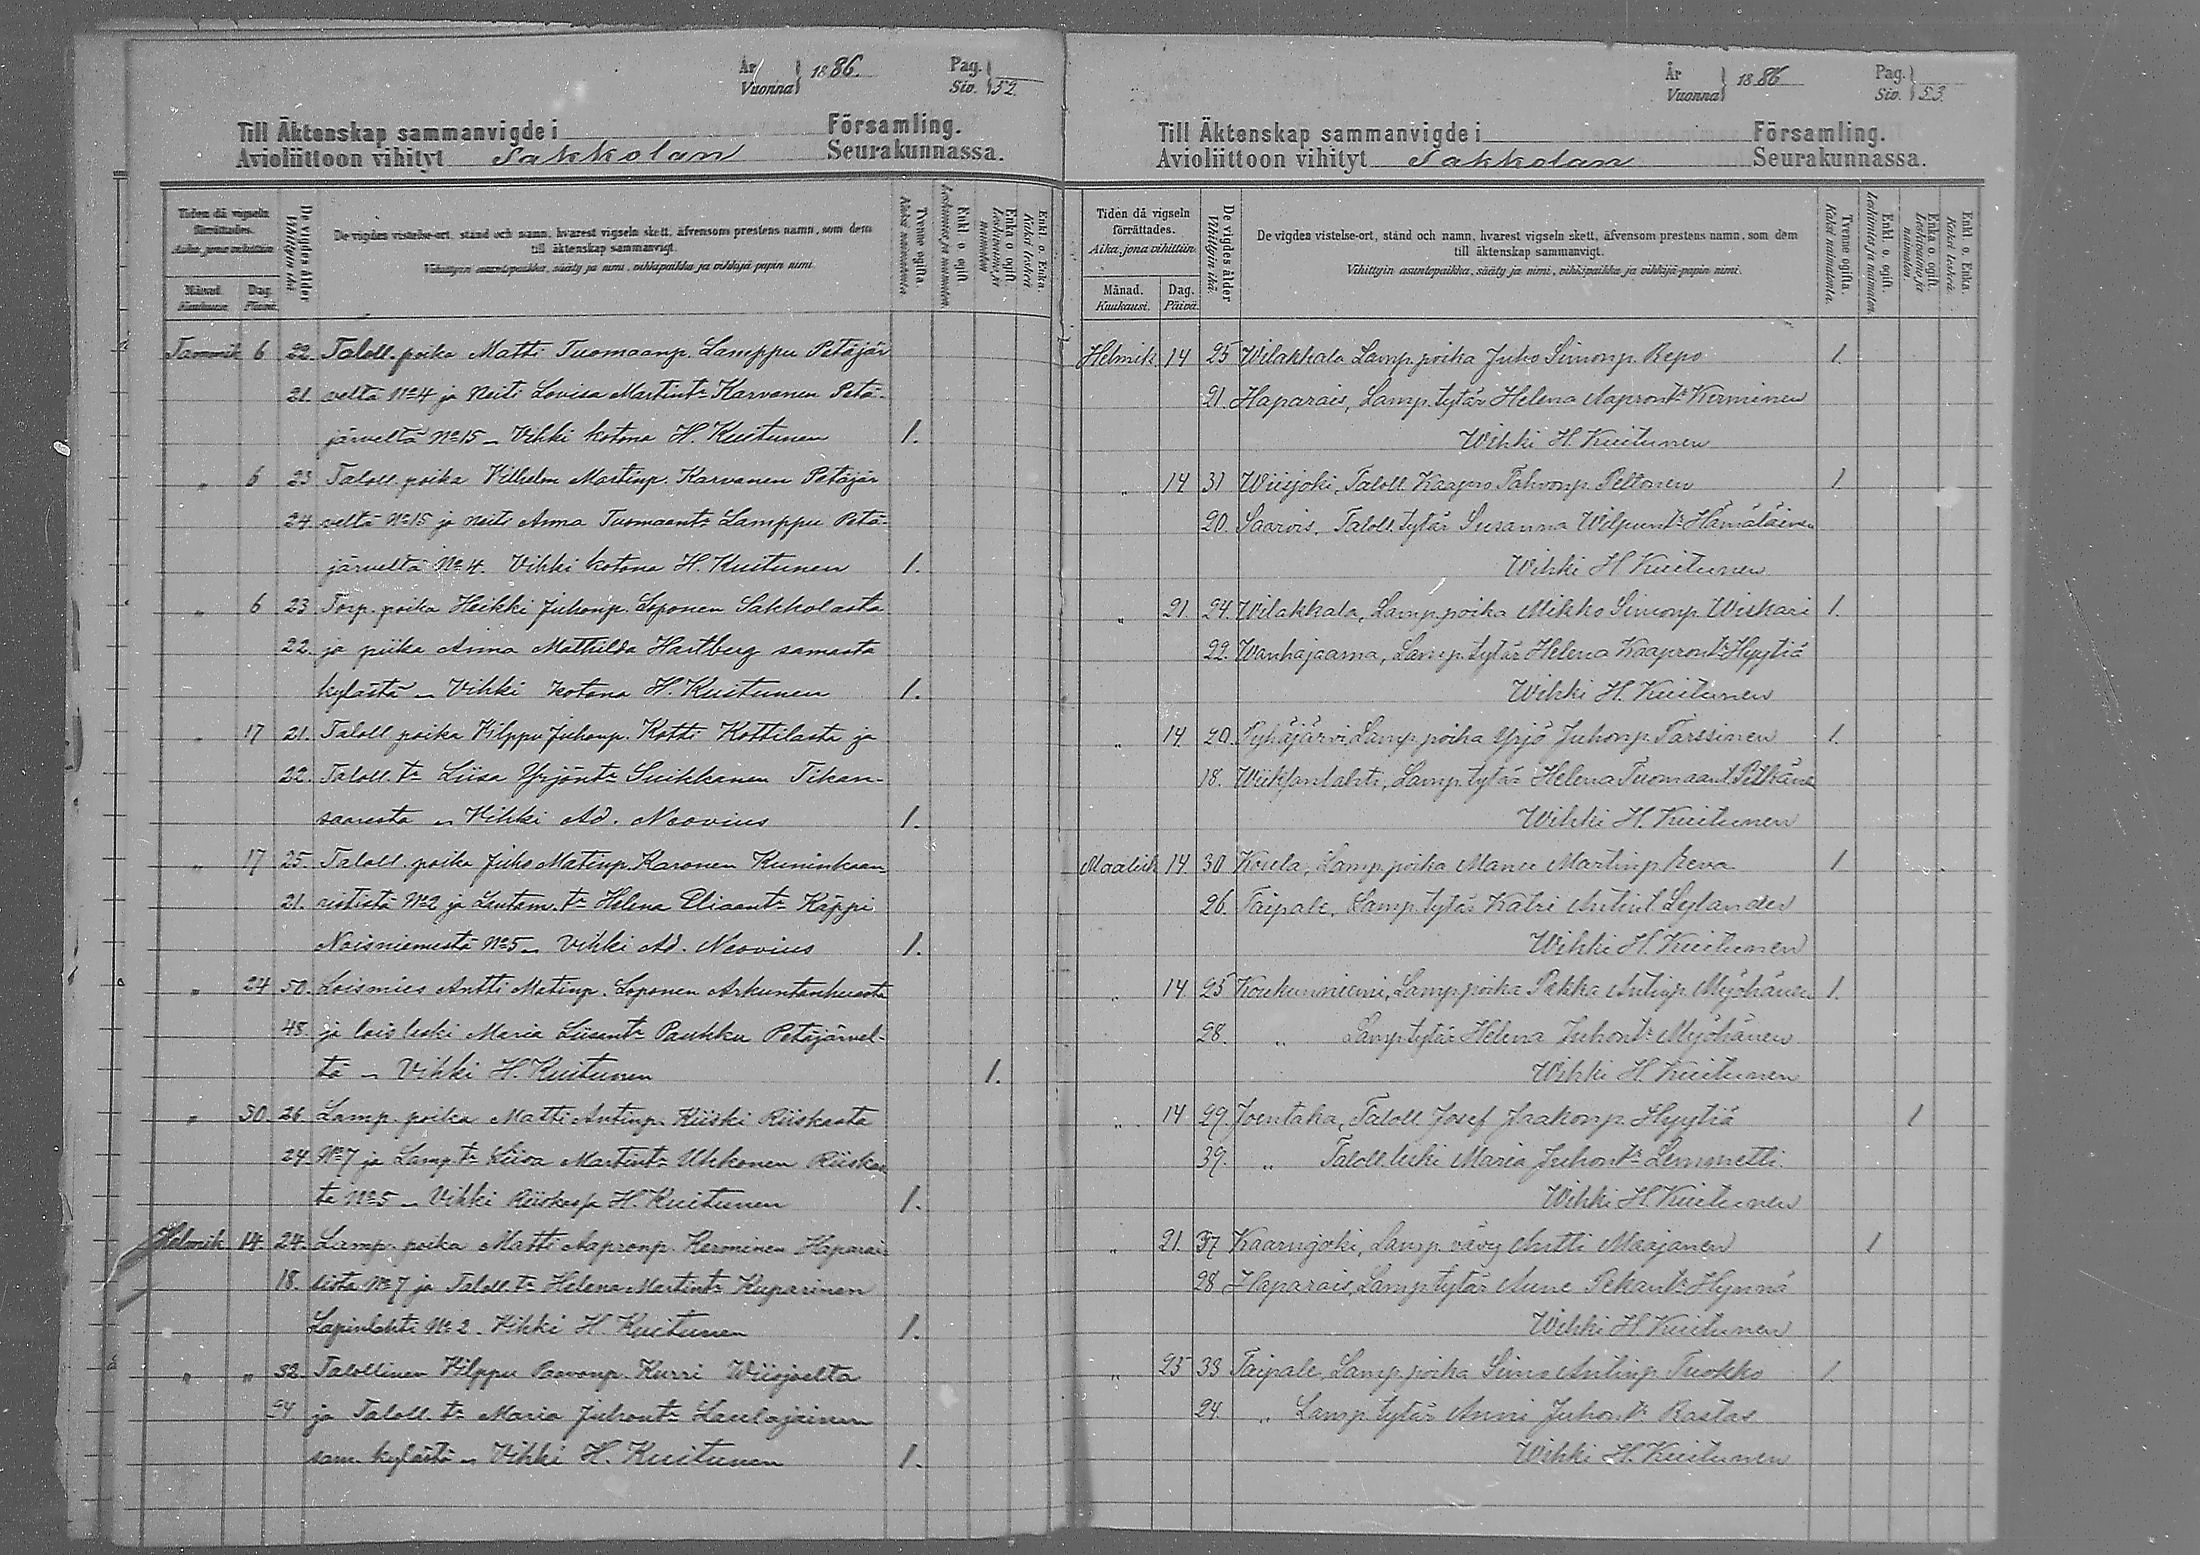 År
Vuonna 1886.
Pag.
Siv. 52.
Till Äktenskap sammanvigde i Församling.
Avioliittoon vihityt Sakkolan Seurakunnassa.
Tiden då vigseln förrättades.
Aika, jona vihittiin.
Månad. Kuukausi.
Dag. Päivä.
De vigdes ålder
Vihittyin ikä
De vigdes vistelse-ort, stånd och namn, hvarest vigseln skett, äfvensom prestens namn, som dem
till äktenskap sammanvigt.
Vihittyin asuntopaikka, sääty ja nimi, vihkipaikka ja vihkijä-papin nimi.
Tvenne ogifta.
Kaksi naimatonta.
Enkl. o. ogift.
Leskimies ja naimaton.
Enka o. ogift.
Leskivaimo ja naimaton.
Enkl. o. Enka.
Kaksi leskeä.
Tammik 6 22. Taloll. poika Matti Tuomaanp. Lamppu Petäjär
21. veltä No 4 ja Neiti Lovisa Martint. Karvanen Petä-
järveltä No 15 – Vihki kotona H. Kuitunen 1.
„ 6 23 Taloll. poika Vilhelm Martinp. Karvanen Petäjär
24. veltä No 15 ja neiti Anna Tuomaant. Lamppu Petä-
järveltä No 4. Vihki kotona H. Kuitunen 1.
„ 6 23 Torp. poika Heikki Juhonp. Loponen Sakkolasta
22. ja piika Anna Mathilda Hartberg samasta
kylästä – Vihki kotona H. Kuitunen 1.
„ 17 21. Taloll. poika Vilppu Juhonp. Kotti Kottilasta ja
22. Taloll. tr Liisa Yrjönt. Suikkanen Tikan-
saaresta – Vihki Ad. Neovius 1.
„ 17 25. Taloll. poika Juho Matinp. Karonen Kuninkaan
21. rististä No 2 ja Lautam. tr Helena Eliaant. Käppi
Noisniemestä No 5 – Vihki Ad. Neovius 1.
„ 24 50. Loismies Antti Matinp. Loponen Arkuntanhuasta
48. ja lois leski Maria Paukku Petäjärvel-
tä – Vihki H. Kuitunen 1.
„ 30. 26. Lamp. poika Matti Antinp. Kiiski Riiskasta
24. No 7 ja Lamp. tr Martint. Ukkonen Riiskas
ta No 5 – Vihki Riiskassa H. Kuitunen 1.
Helmik 14. 24. Lamp. poika Matti Aapronp. Kerminen Haparai
18. sista No 7 ja Taloll. tr Helena Martint. Kuparinen
Lapinlahti No 2. Vihki H. Kuitunen 1.
„ „ 32. Talollinen Vilppu Paavonp. Kurri Wiisjoelta
24 ja Taloll. tr Maria Juhont. Laulajainen
sam. kylästä – Vihki H. Kuitunen 1.
År
Vuonna 1886
Pag.
Siv. 53.
Till Äktenskap sammanvigde i Församling.
Avioliittoon vihityt Sakkolan Seurakunnassa.
Tiden då vigseln förrättades.
Aika, jona vihittiin.
Månad. Kuukausi.
Dag. Päivä.
De vigdes ålder
Vihittyin ikä.
De vigdes vistelse-ort, stånd och namn, hvarest vigseln skett, äfvensom prestens namn, som dem
till äktenskap sammanvigt.
Vihittyin asuntopaikka, sääty ja nimi, vihkipaikka ja vihkijä-papin nimi.
Tvenne ogifta.
Kaksi naimatonta.
Enkl. o. ogift.
Leskimies ja naimaton.
Enka o. ogift.
Leskivaimo ja naimaton.
Enkl. o. Enka.
Kaksi leskeä.
Helmik 14 25 Wilakkala Lamp. poika Juho Simonp. Repo 1.
21. Haparais, Lamp. tytär Helena Aapront. Kerminen
Wihki H. Kuitunen
„ 14 31 Wiisjoki, Taloll. Kaapro Tahvonp. Peltonen 1
20. Saarois. Taloll. tytär Susanna Wilpunt. Hämäläinen
Wihki H Kuitunen
„ 21. 24. Wilakkala, Lamp. poika Mikko Simonp. Wiskari 1.
22. Wanhajaama, Lamp. tytär Helena Kaapront. Hyytiä
Wihki H. Kuitunen
„ 14. 20. Pyhäjärvi Lamp. poika Yrjö Juhonp. Tarssinen 1.
18. Lamp. tytär Helena Tuomaant. Pitkänen
Wihki H. Kuitunen
Maalisk 14. 30 Koukla, Lamp. poika Manu Martinp. 1
26. Taipale, Lamp. tytär Katri Antint. Sylander
Wihki H. Kuitunen
„ 14. 25 Koukunniemi, Lamp. poika Pekka Antinp. Myöhänen 1.
28. „ Lamp. tytär Helena Juhont. Myöhänen
Wihki H. Kuitunen
„ 14 29. Joentaka, Taloll. Josef Jaakonp. Hyytiä 1
39. „ Taloll. leski Maria Juhont. Lemmetti.
Wihki H Kuitunen
„ 21. 37. Kaarnajoki, Lamp. vävy Antti Maajanen 1
28 Haparais, Lamp. tytär Anne Pekant. Hynnä
Wihki H. Kuitunen
„ 25 33 Taipale, Lamp. poika Simo Antinp. Tuokko 1.
24. „ Lamp. tytär Anni Juhont. Rastas
Wihki H. Kuitunen